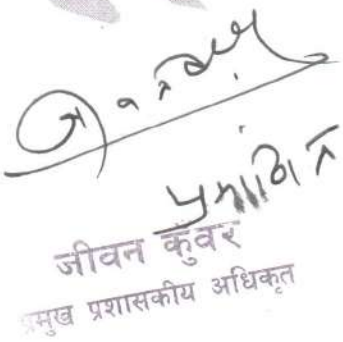 प्रमाणित
जीवन कुंवर
प्रमुख प्रशासकीय अधिकृत